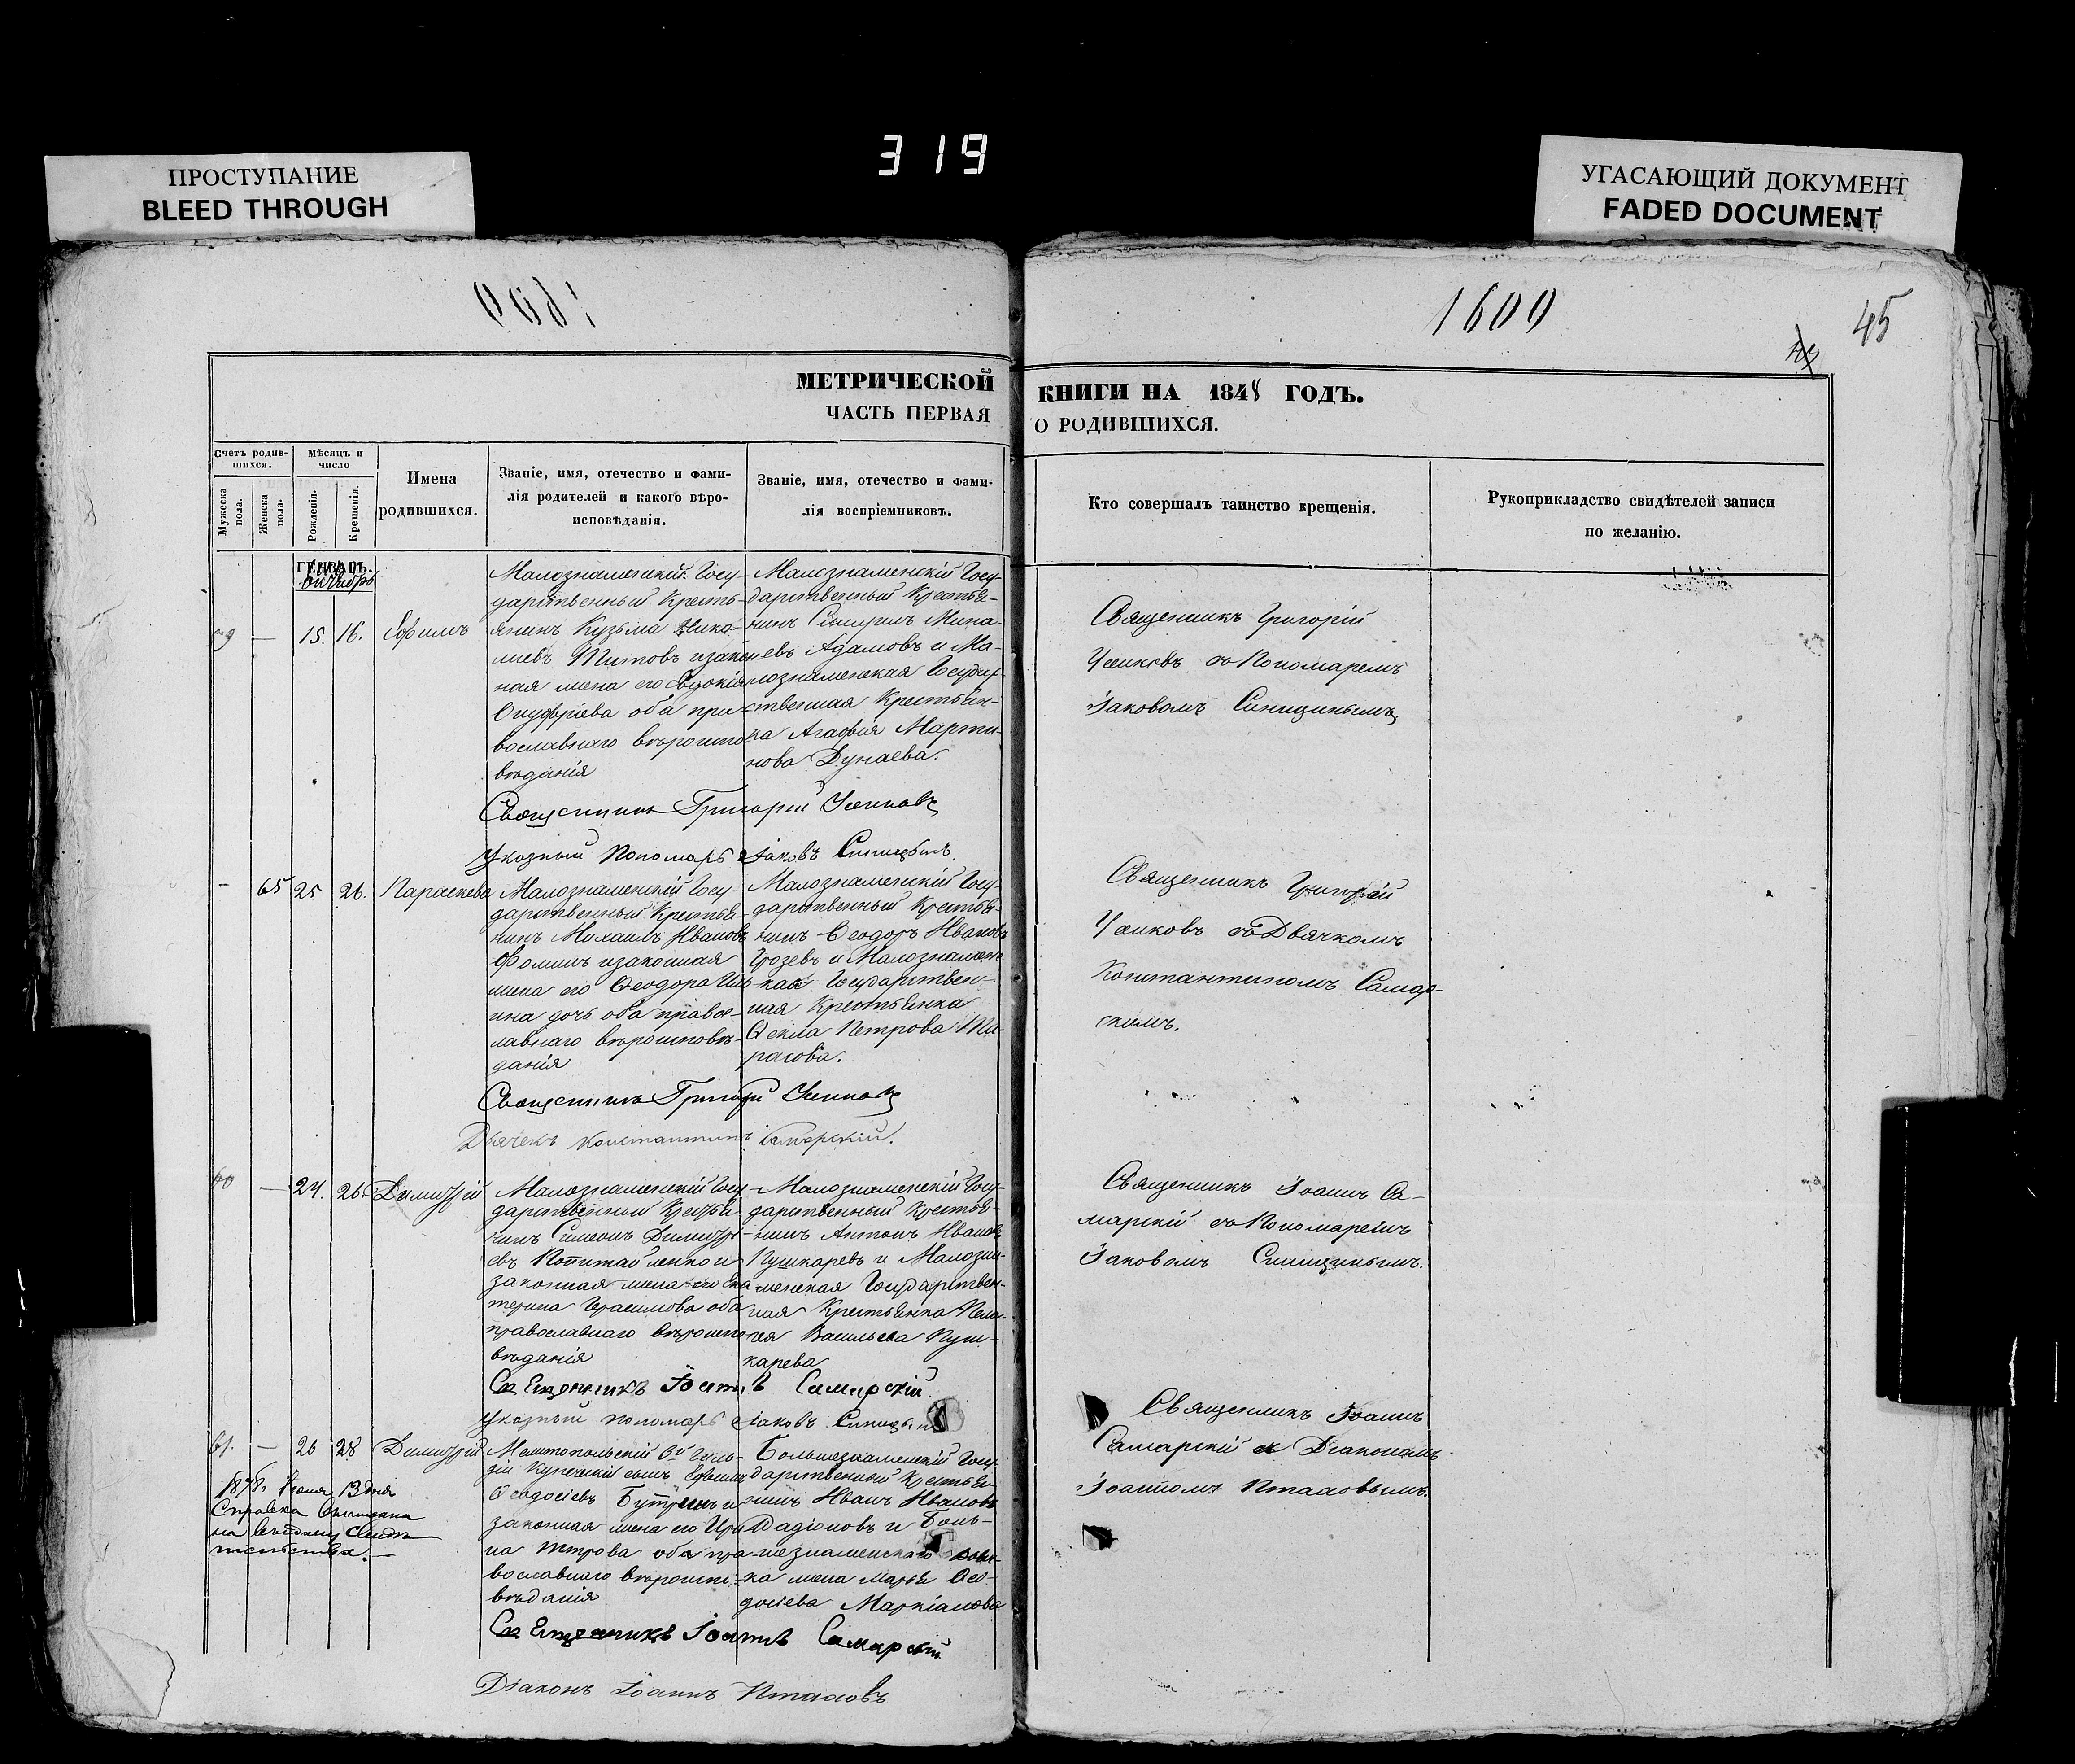 319
ПРОСТУПАНИЕ
BLEED THROUGH
УГАСАЮЩИЙ ДОКУМЕНТ
FADED DOCUMENT
1600
45
МЕТРИЧЕСКОЙ КНИГИ НА 1848 ГОДЪ.
ЧАСТЬ ПЕРВАЯ О РОДИВШИХСЯ.
Счетъ родив-
шихся.
Мужеска пола.
Женска пола.
Мѣсяцъ и
число
Рожденія.
Крещенія.
Имена
родившихся.
Званіе, имя, отечество и фами-
лія родителей и какого вѣро-
исповѣданія.
Званіе, имя, отечество и фами-
лія воспріемниковъ.
Кто совершалъ таинство крещенія.
Рукоприкладство свидѣтелей записи
по желанію.
ГЕНВАРЬ.
октябрь
— 15. 16. Ефимъ
Малознаменскій Госу-
дарственный Кресть-
янинъ Кузьма
Титовъ и закон-
ная жена его Евдокія
Онуфріева оба пра-
вославнаго вѣроиспо-
вѣданія
Малознаменскій Госу-
дарственный Крестья-
нинъ Спиридъ Мина-
евъ Адамовъ и Ма-
лознаменская Государ-
ственная Крестьян-
ка Агафія Марти-
нова Дунаева.
Священникъ Григорій
Усиковъ съ Пономаремъ
Іаковомъ Синицинымъ
Священникъ Григорій Усиковъ
Указный Пономарь Іаковъ Синицынъ
- 65 25 26. Параскева
Малознаменскій Госу-
дарственный Крестья-
нинъ Михаилъ Ивановъ
Фоминъ и законная
жена его Ѳеодора Иль-
ина дочь оба право-
славнаго вѣроисповѣ-
данія
Малознаменскій Госу-
дарственный Крестья-
нинъ Ѳеодоръ Ивановъ
Грозевъ и Малознамен-
ская Государствен-
ная Крестьянка
Ѳекла Петрова
Священникъ Григорій
Усиковъ съ Дьячкомъ
Константиномъ Самар-
скимъ.
Священникъ Григорій Усиковъ
Дьячекъ Константинъ Самарскій.
60 — 24. 26. Димитрій
Малознаменскій Госу-
дарственный Крестья-
нинъ Симеонъ Димитрі-
евъ и
законная жена его Ека-
терина Герасимова оба
православнаго вѣроиспо-
вѣданія
Малознаменскій Госу-
дарственный Крестья-
нинъ Антонъ Ивановъ
Пушкаревъ и Малозна-
менская Государствен-
ная Крестьянка Пела-
гея Васильева Пуш-
карева
Священникъ Іоаннъ Са-
марскій съ Пономаремъ
Іаковомъ Синицинымъ.
Священникъ Іоаннъ Самарскій.
Указный пономарь Іаковъ Синицынъ
61. — 26 28 Димитрій
Мелитопольскій 3й Гиль-
діи Купеческій сынъ Ефимъ
Ѳеодосіевъ и
законная жена его Ири-
на Петрова оба пра-
вославнаго вѣроиспо-
вѣданія
Большезнаменскій Госу-
дарственный Крестья-
нинъ Иванъ Ивановъ
Радіоновъ и Боль-
шезнаменскаго
жена Марья Ѳео-
досіева Маркіанова
Священникъ Іоаннъ
Самарскій съ Діакономъ
Іоанномъ
1878 13 дня
Справка
Священникъ Іоаннъ Самарскій
Діаконъ Іоаннъ